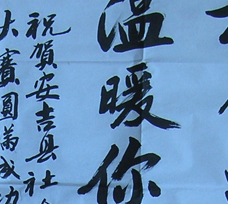 温暖你
祝賀安吉县社会
大賽圓满成功